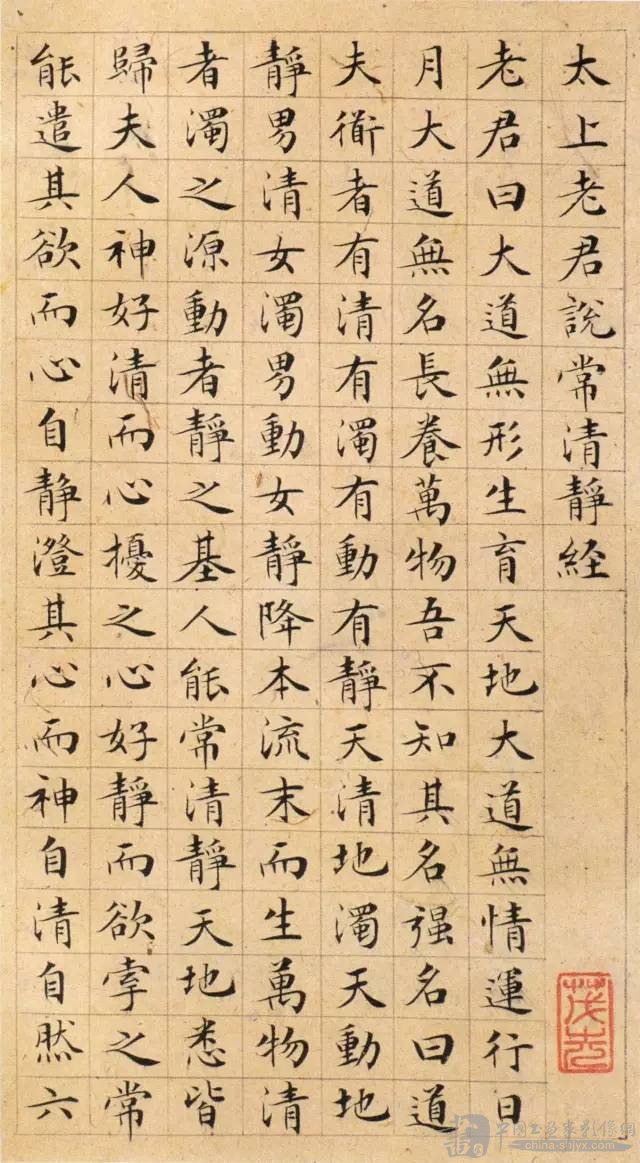 太上老君說常清靜経
老君曰大道無形生育天地大道無情運行日
月大道無名長養萬物吾不知其名强名曰道
夫衜者有清有濁有動有靜天清地濁天動地
靜男清女濁男動女靜降本流末而生萬物清
者濁之源動者靜之基人能常清靜天地悉皆
歸夫人神好清而心擾之心好靜而欲牽之常
能遣其欲而心自靜澄其心而神自清自然六
china-shjyx.com